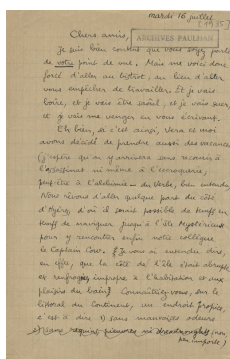 mardi 16 juillet
[1935]
ARCHIVES PAULHAN
Chers amis,
Je suis bien content que vous soyez partis
de votre point de vue. Mais me voici donc
forcé d'aller au bistrot, au lieu d'aller
vous empêcher de travailler. Et je vais
boire, et je vais être saoûl, et je vais
et je vais me venger en vous écrivant.
Eh bien, si c'est ainsi, Vera et moi
avons décidé de prendre aussi des vacances
(j'espère qu'on y arrivera sans recourir à
l'assassinat ni même à l'escroquerie,
peut-être à l'alchimie - du Verbe, bien entendu
Nous rêvons d'aller quelque part du côté
d'Hyères, d'où il serait possible de temps en
temps de naviguer jusqu'à l'Ile Mystérieuse
pour y rencontrer enfin notre collègue
le Captain Cow. J'ai entendu dire,
en effet, que la côte de l'île était abrupte
et impropre à l'habitation et aux
plaisirs du bain. Connaîtriez-vous, sur le
littoral du Continent, un endroit propice,
c'est à dire 1) sans mauvaises odeurs
2) (sans requins, pieuvres ni dreadnoughts (non,
peu importe)